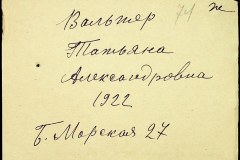 Вальтер 74 ж
Татьяна
Александровна
1922
Б. Морская 27